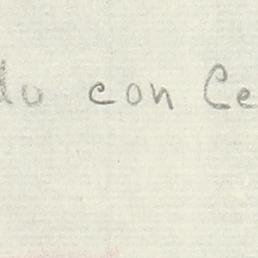 do con Ce